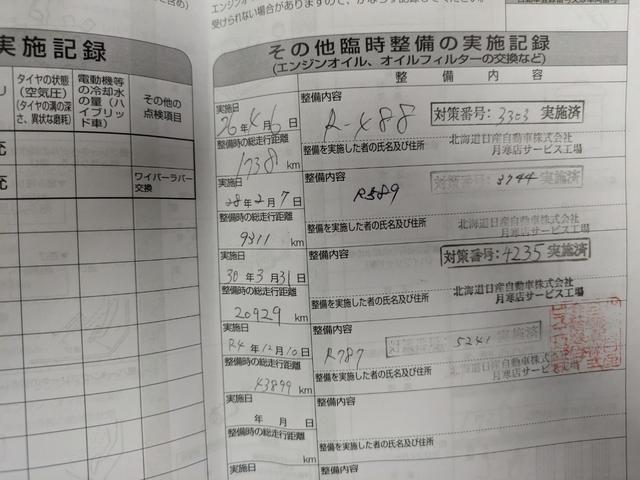 含め)
受けられない場合がありますので、かならず記録してください。
実施記録
タイヤの状態
(空気圧)
(タイヤの溝の深
さ、異状な磨耗)
電動機等
の冷却水
の量(ハ
イブリッ
ド車)
その他の
点検項目
ワイパーラバー
交換
その他臨時整備の実施記録
(エンジンオイル、オイルフィルターの交換など)
整備内容
実施日
26年4月6日
整備内容
R-488
対策番号:3303実施済
整備時の総走行距離
1738km
整備を実施した者の氏名及び住所
北海道日産自動車株式会社
月寒店サービス工場
実施日
28年2月7日
整備内容
R589
3744実施済
整備時の総走行距離
9311km
整備を実施した者の氏名及び住所
北海道日産自動車株式会社
月寒店サービス工場
実施日
30年3月31日
整備内容
対策番号:4235実施済
整備時の総走行距離
20929km
整備を実施した者の氏名及び住所
北海道日産自動車株式会社
月寒店サービス工場
実施日
R4年12月10日
整備内容
R787
対策番号:5241実施済
整備時の総走行距離
43899km
整備を実施した者の氏名及び住所
北海道日産自動車株式会社
月寒店サービス工場
年月日
整備内容
整備時の総走行距離
km
整備を実施した者の氏名及び住所
実施日
整備内容